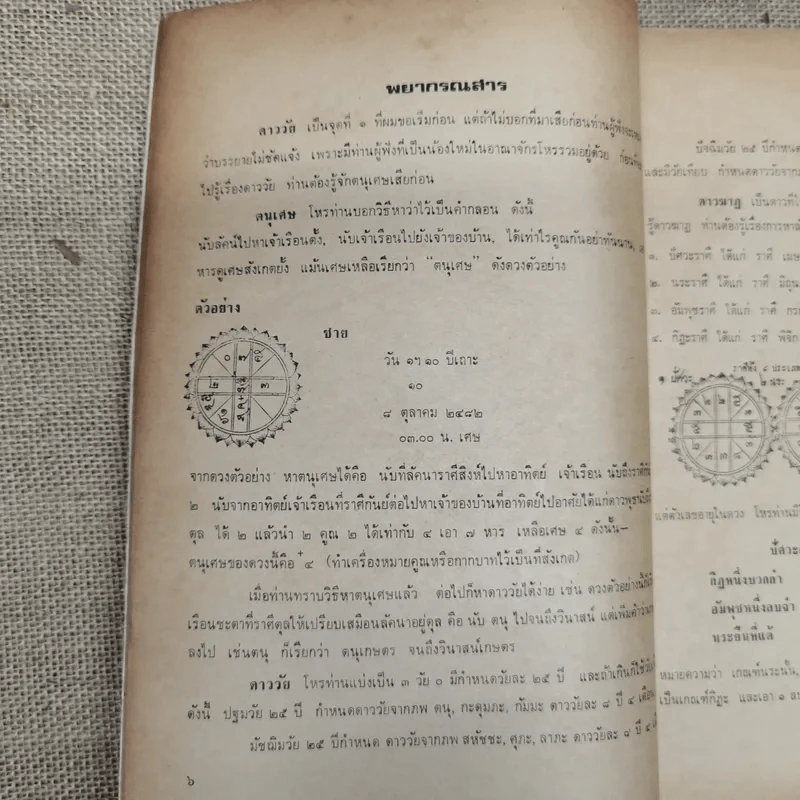 พยากรณสาร
ดาววัย เป็นจุดที่ ๑ ที่ผมขอเริ่มก่อน แต่ถ้าไม่บอกที่มาเสียก่อนท่านผู้ฟัง
ว่าบรรยายไม่ชัดแจ้ง เพราะมีท่านผู้ฟังที่เป็นน้องใหม่ในอาณาจักรโหรรวมอยู่ด้วย ก่อน
ไปรู้เรื่องดาววัย ท่านต้องรู้จักตนุเศษเสียก่อน
ตนุเศษ โหรท่านบอกวิธีหาว่าไว้เป็นคำกลอน ดังนี้
นับลัคน์ไปหาเจ้าเรือนตั้ง, นับเจ้าเรือนไปยังเจ้าของบ้าน, ได้เท่าไรคูณกันอย่าทันนาน,
หารดูเศษสังเกตยั้ง แม้นเศษเหลือเรียกว่า "ตนุเศษ" ดังดวงตัวอย่าง
ตัวอย่าง
ชาย
วัน ๑ฯ ๑๐ ปีเถาะ
๑๐
๘ ตุลาคม ๒๔๘๒
๐๓.๐๐ น. เศษ
จากดวงตัวอย่าง หาตนุเศษได้คือ นับที่ลัคนาราศีสิงห์ไปหาอาทิตย์ เจ้าเรือน นับถึงราศี
๒ นับจากอาทิตย์เจ้าเรือนที่ราศีกันย์ต่อไปหาเจ้าของบ้านที่อาทิตย์ไปอาศัยได้แก่ดาวพุธ
ตุล ได้ ๒ แล้วนำ ๒ คูณ ๒ ได้เท่ากับ ๔ เอา ๗ หาร เหลือเศษ ๔ ดังนั้น–
ตนุเศษของดวงนี้คือ +๔ (ทำเครื่องหมายคูณหรือกากบาทไว้เป็นที่สังเกต)
เมื่อท่านทราบวิธีหาตนุเศษแล้ว ต่อไปก็หาดาววัยได้ง่าย เช่น ดวงตัวอย่างนี้
เรือนชะตาที่ราศีตุลให้เปรียบเสมือนลัคนาอยู่ตุล คือ นับ ตนุ ไปจนถึงวินาสน์ แต่เพิ่มคำว่า
ลงไป เช่นตนุ ก็เรียกว่า ตนุเกษตร จนถึงวินาสน์เกษตร
ดาววัย โหรท่านแบ่งเป็น ๓ วัย ๑ มีกำหนดวัยละ ๒๕ ปี และถ้าเกินก็ใช้
ดังนี้ ปฐมวัย ๒๕ ปี กำหนดดาววัยจากภพ ตนุ, กะดุมภะ, กัมมะ ดาววัยละ ๘ ปี ๔ เดือน
มัชฌิมวัย ๒๕ ปีกำหนด ดาววัยจากภพ สหัชชะ, ศุภะ, ลาภะ ดาววัยละ ๘ ปี ๔
๖
ปัจฉิมวัย ๒๕ ปีกำหนด
และมีวัยเทียบ กำหนดดาววัยจาก
ดาวฆาฏ เป็นดาวที่
รู้ดาวฆาฏ ท่านต้องรู้เรื่องการหา
๑. ปัศวะราศี ได้แก่ ราศี เมษ
๒. นระราศี ได้แก่ ราศี มิถุน
๓. อัมพุชราศี ได้แก่ ราศี กร
๔. กีฏะราศี ได้แก่ ราศี พิจิก
ราศีทั้ง ๔ ประเภท
๑ ปัศวะ
๒ นระ
แต่ตัวเลขอายุในดวง โหรท่านมี
ปัสวะ
กีฏหนึ่งบวกล้ำ
อัมพุชหนึ่งลบจำ
นระยืนที่แต้
หมายความว่า เกณฑ์นระนั้น,
เป็นเกณฑ์กีฏะ และเอา ๑ ลบ